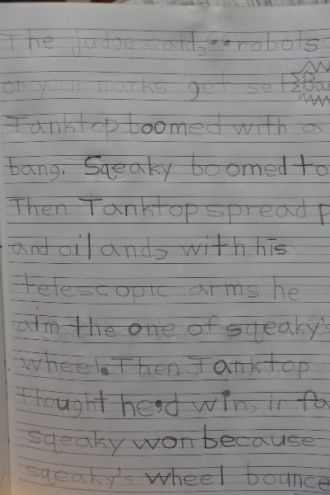 The judge said, "robots
on your marks get set Ban
Tanktop boomed with a
bang. Sqeaky boomed to
Then Tanktop spread p
and oil and, with his
telescopic arms he
aim the one of sqeaky's
wheel. Then Tanktop
thought he'd win, in fa
sqeaky won because
sqeaky's wheel bounce